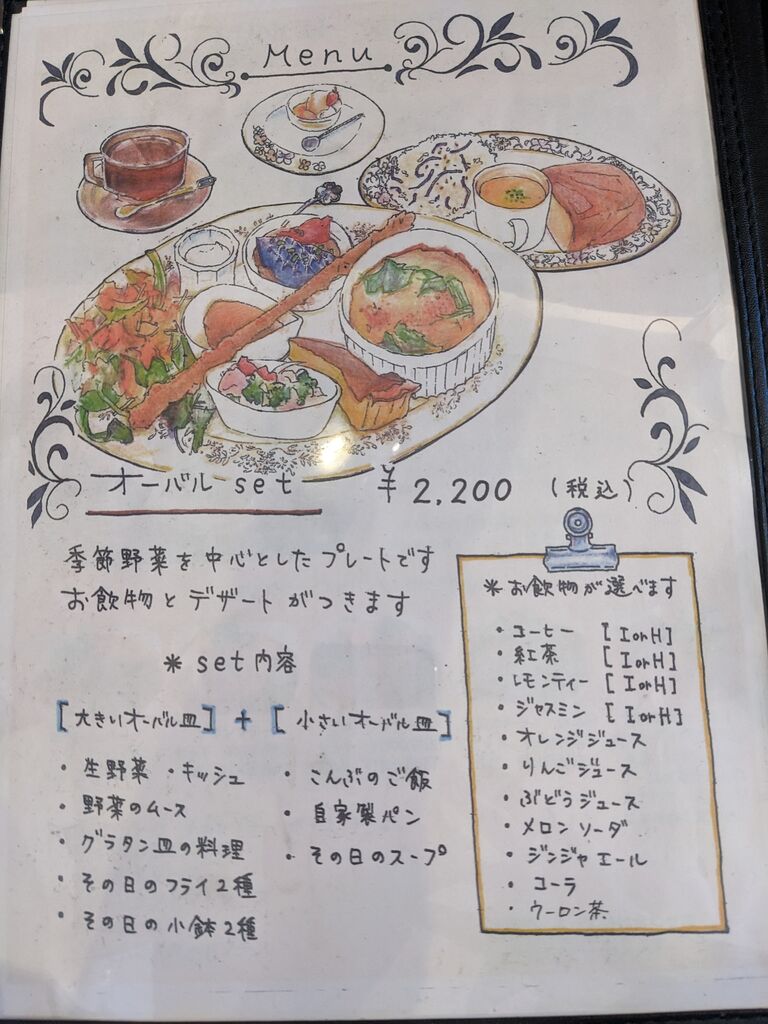 Menu
オーバル set ¥2,200 (税込)
季節野菜を中心としたプレートです
お飲物とデザートがつきます
* set内容
[大きいオーバル皿] + [小さいオーバル皿]
・生野菜 ・キッシュ
・野菜のムース
・グラタン皿の料理
・その日のフライ2種
・その日の小鉢2種
・こんぶのご飯
・自家製パン
・その日のスープ
*お飲物が選べます
・コーヒー [IorH]
・紅茶 [IorH]
・レモンティー [IorH]
・ジャスミン [IorH]
・オレンジジュース
・りんごジュース
・ぶどうジュース
・メロンソーダ
・ジンジャエール
・コーラ
・ウーロン茶